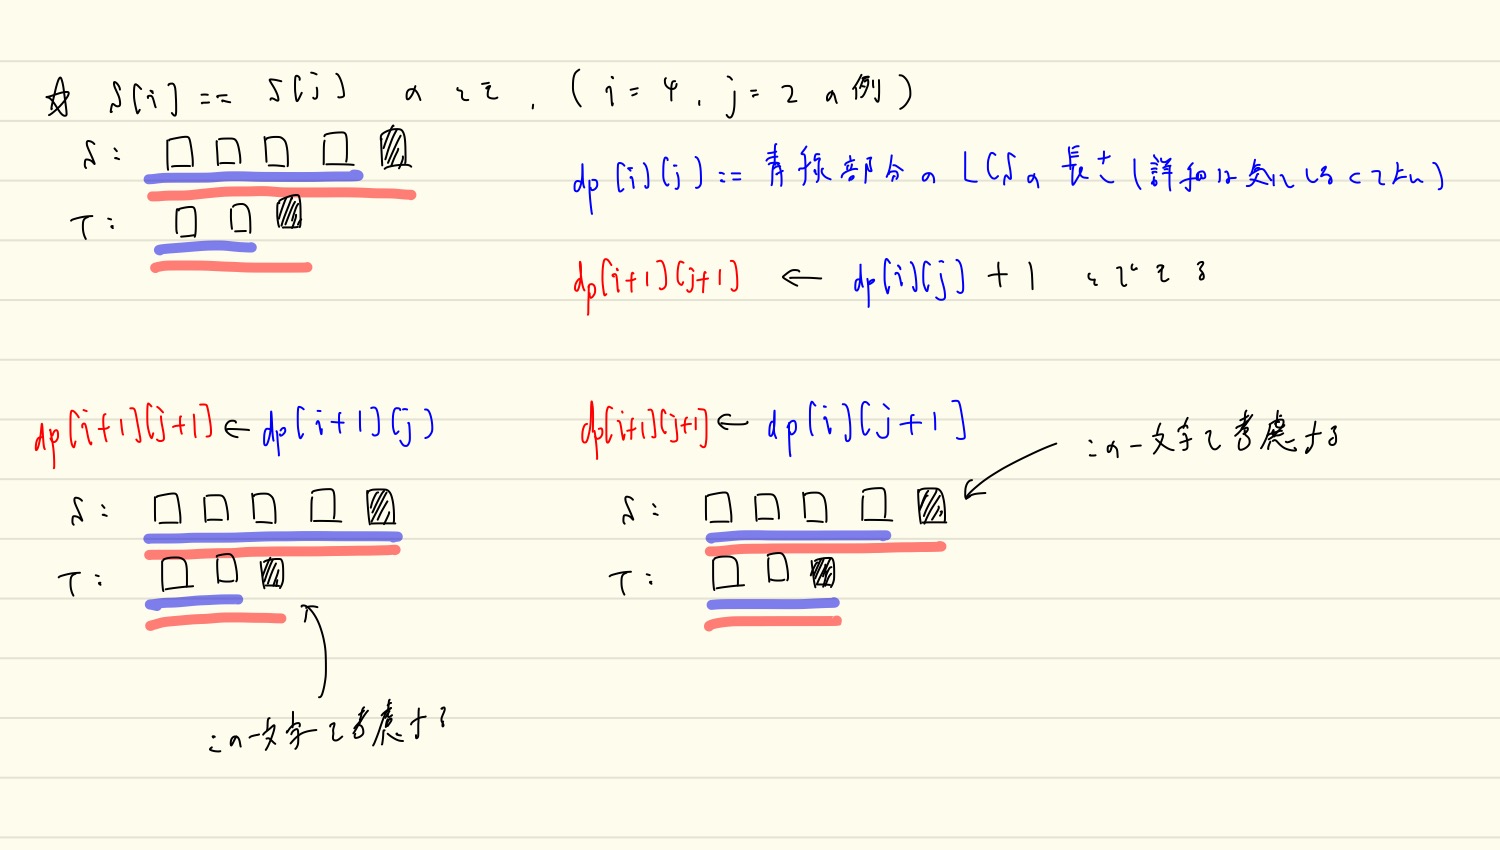 ☆ S[i] == S[j] のとき, (i=4, j=2 の例)
S:
T:
dp[i][j] := 青線部分の LCSの 長さ (詳細は気にしなくてよい)
dp[i+1][j+1] ← dp[i][j] + 1 とできる
dp[i+1][j+1] ← dp[i+1][j]
S:
T:
この一文字を考慮する
dp[i+1][j+1] ← dp[i][j+1]
この一文字を考慮する
S:
T: